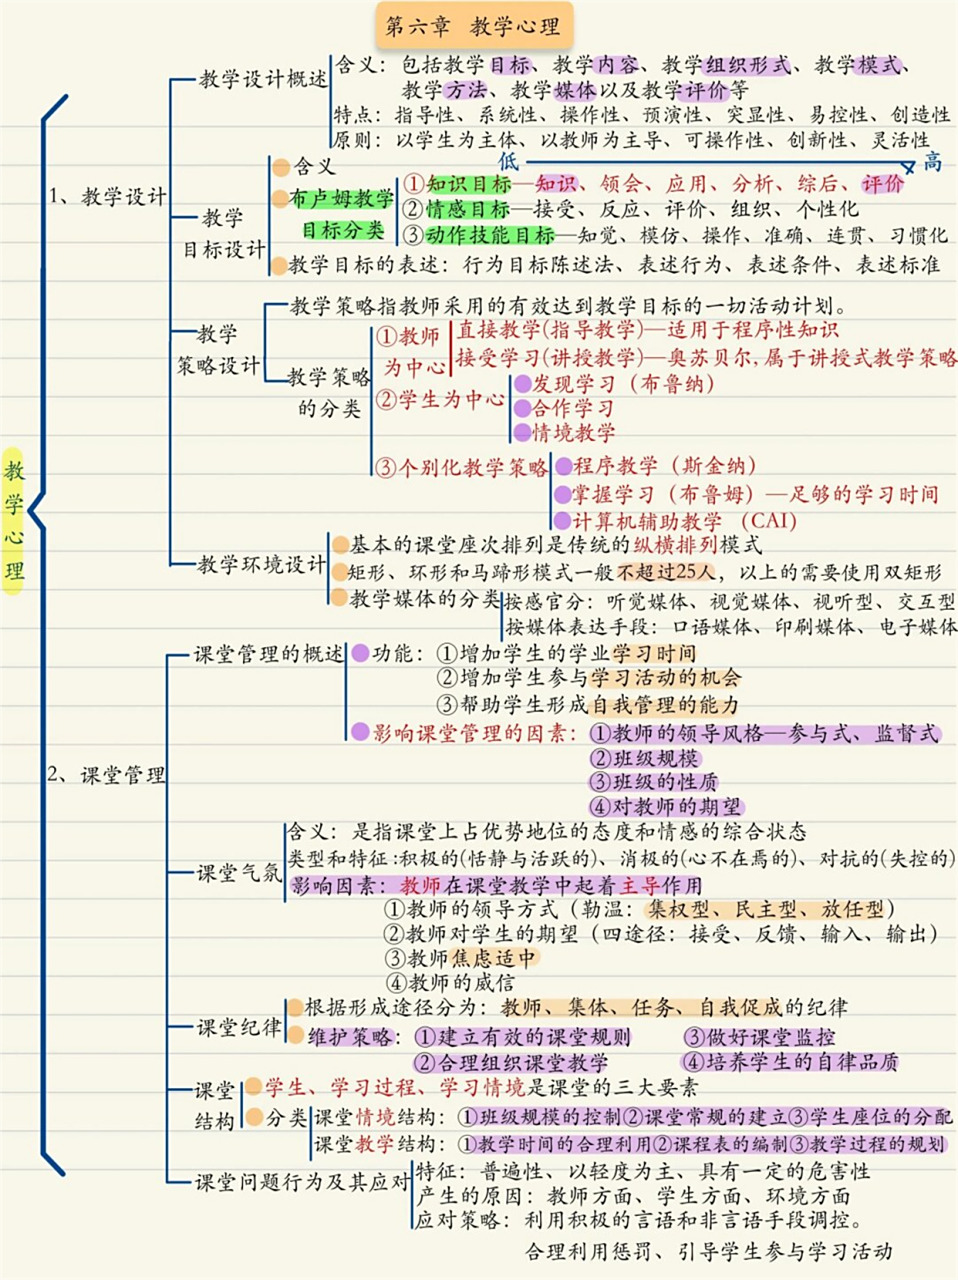 第六章 教学心理
教学心理
1、教学设计
教学设计概述
含义：包括教学目标、教学内容、教学组织形式、教学模式、
教学方法、教学媒体以及教学评价等
特点：指导性、系统性、操作性、预演性、突显性、易控性、创造性
原则：以学生为主体、以教师为主导、可操作性、创新性、灵活性
教学
目标设计
含义
低 高
布卢姆教学
目标分类
①知识目标—知识、领会、应用、分析、综后、评价
②情感目标—接受、反应、评价、组织、个性化
③动作技能目标—知觉、模仿、操作、准确、连贯、习惯化
教学目标的表述：行为目标陈述法、表述行为、表述条件、表述标准
教学
策略设计
教学策略指教师采用的有效达到教学目标的一切活动计划。
教学策略
的分类
①教师
为中心
直接教学(指导教学)—适用于程序性知识
接受学习(讲授教学)—奥苏贝尔,属于讲授式教学策略
②学生为中心
发现学习（布鲁纳）
合作学习
情境教学
③个别化教学策略
程序教学（斯金纳）
掌握学习（布鲁姆）—足够的学习时间
计算机辅助教学 （CAI）
教学环境设计
基本的课堂座次排列是传统的纵横排列模式
矩形、环形和马蹄形模式一般不超过25人，以上的需要使用双矩形
教学媒体的分类
按感官分：听觉媒体、视觉媒体、视听型、交互型
按媒体表达手段：口语媒体、印刷媒体、电子媒体
2、课堂管理
课堂管理的概述
功能：①增加学生的学业学习时间
②增加学生参与学习活动的机会
③帮助学生形成自我管理的能力
影响课堂管理的因素：①教师的领导风格—参与式、监督式
②班级规模
③班级的性质
④对教师的期望
课堂气氛
含义：是指课堂上占优势地位的态度和情感的综合状态
类型和特征:积极的(恬静与活跃的)、消极的(心不在焉的)、对抗的(失控的)
影响因素：教师在课堂教学中起着主导作用
①教师的领导方式（勒温：集权型、民主型、放任型）
②教师对学生的期望（四途径：接受、反馈、输入、输出）
③教师焦虑适中
④教师的威信
课堂纪律
根据形成途径分为：教师、集体、任务、自我促成的纪律
维护策略：①建立有效的课堂规则 ③做好课堂监控
②合理组织课堂教学 ④培养学生的自律品质
课堂
结构
学生、学习过程、学习情境是课堂的三大要素
分类
课堂情境结构：①班级规模的控制②课堂常规的建立③学生座位的分配
课堂教学结构：①教学时间的合理利用②课程表的编制③教学过程的规划
课堂问题行为及其应对
特征：普遍性、以轻度为主、具有一定的危害性
产生的原因：教师方面、学生方面、环境方面
应对策略：利用积极的言语和非言语手段调控。
合理利用惩罚、引导学生参与学习活动